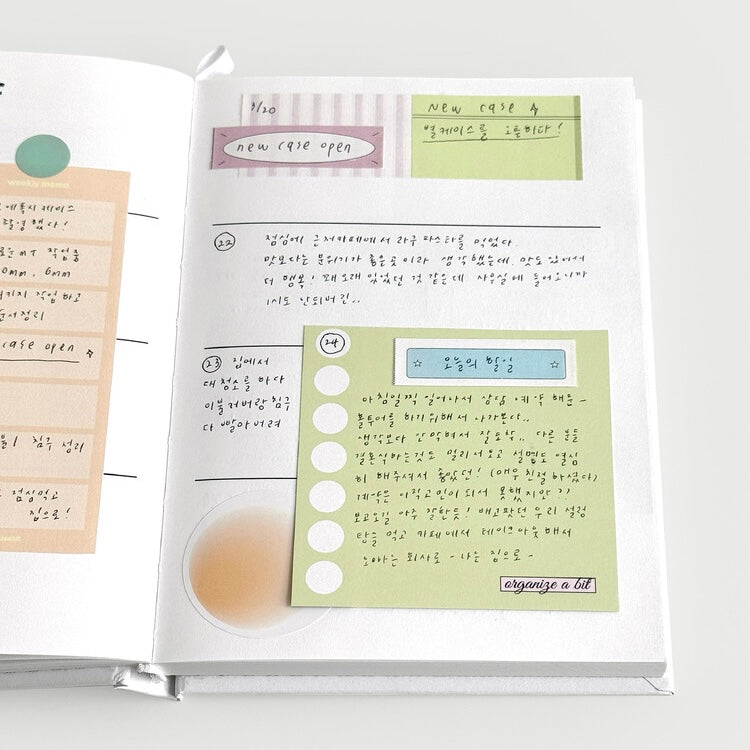 weekly memo
촬영했다!
작업중
0mm, 6mm
패키지 작업하고
순서정리
case open
침구 정리
점심먹고
집으로!
3/20
new case open
New case
별케이스를 오픈하다!
22
점심에 근처카페에서 라구 파스타를 먹었다.
맛보다는 분위기가 좋은곳이라 생각했는데, 맛도있어서
더 행복! 꽤오래 있었던 것 같은데 사무실에 들어오니까
1시도 안되버린..
23 집에서
대청소를 하다
이불커버랑 침구
다 빨아버려
24
오늘의 할일
아침일찍 일어나서 상담 예약 해둔-
볼투어를 하기위해서 나가본다..
생각보다 안막혀서 잘도착.. 다른 분들
결혼식하는것도 멀리서보고 설명도 열심
히 해주셔서 좋았던! (매우친절하셨다)
계약은 아직고민이되서 못했지만??
보고오길 아주 잘한듯! 배고팟던 우리 설렁
탕을 먹고 카페에서 테이크아웃해서
노아는 회사로 - 나는 집으로 -
organize a bit